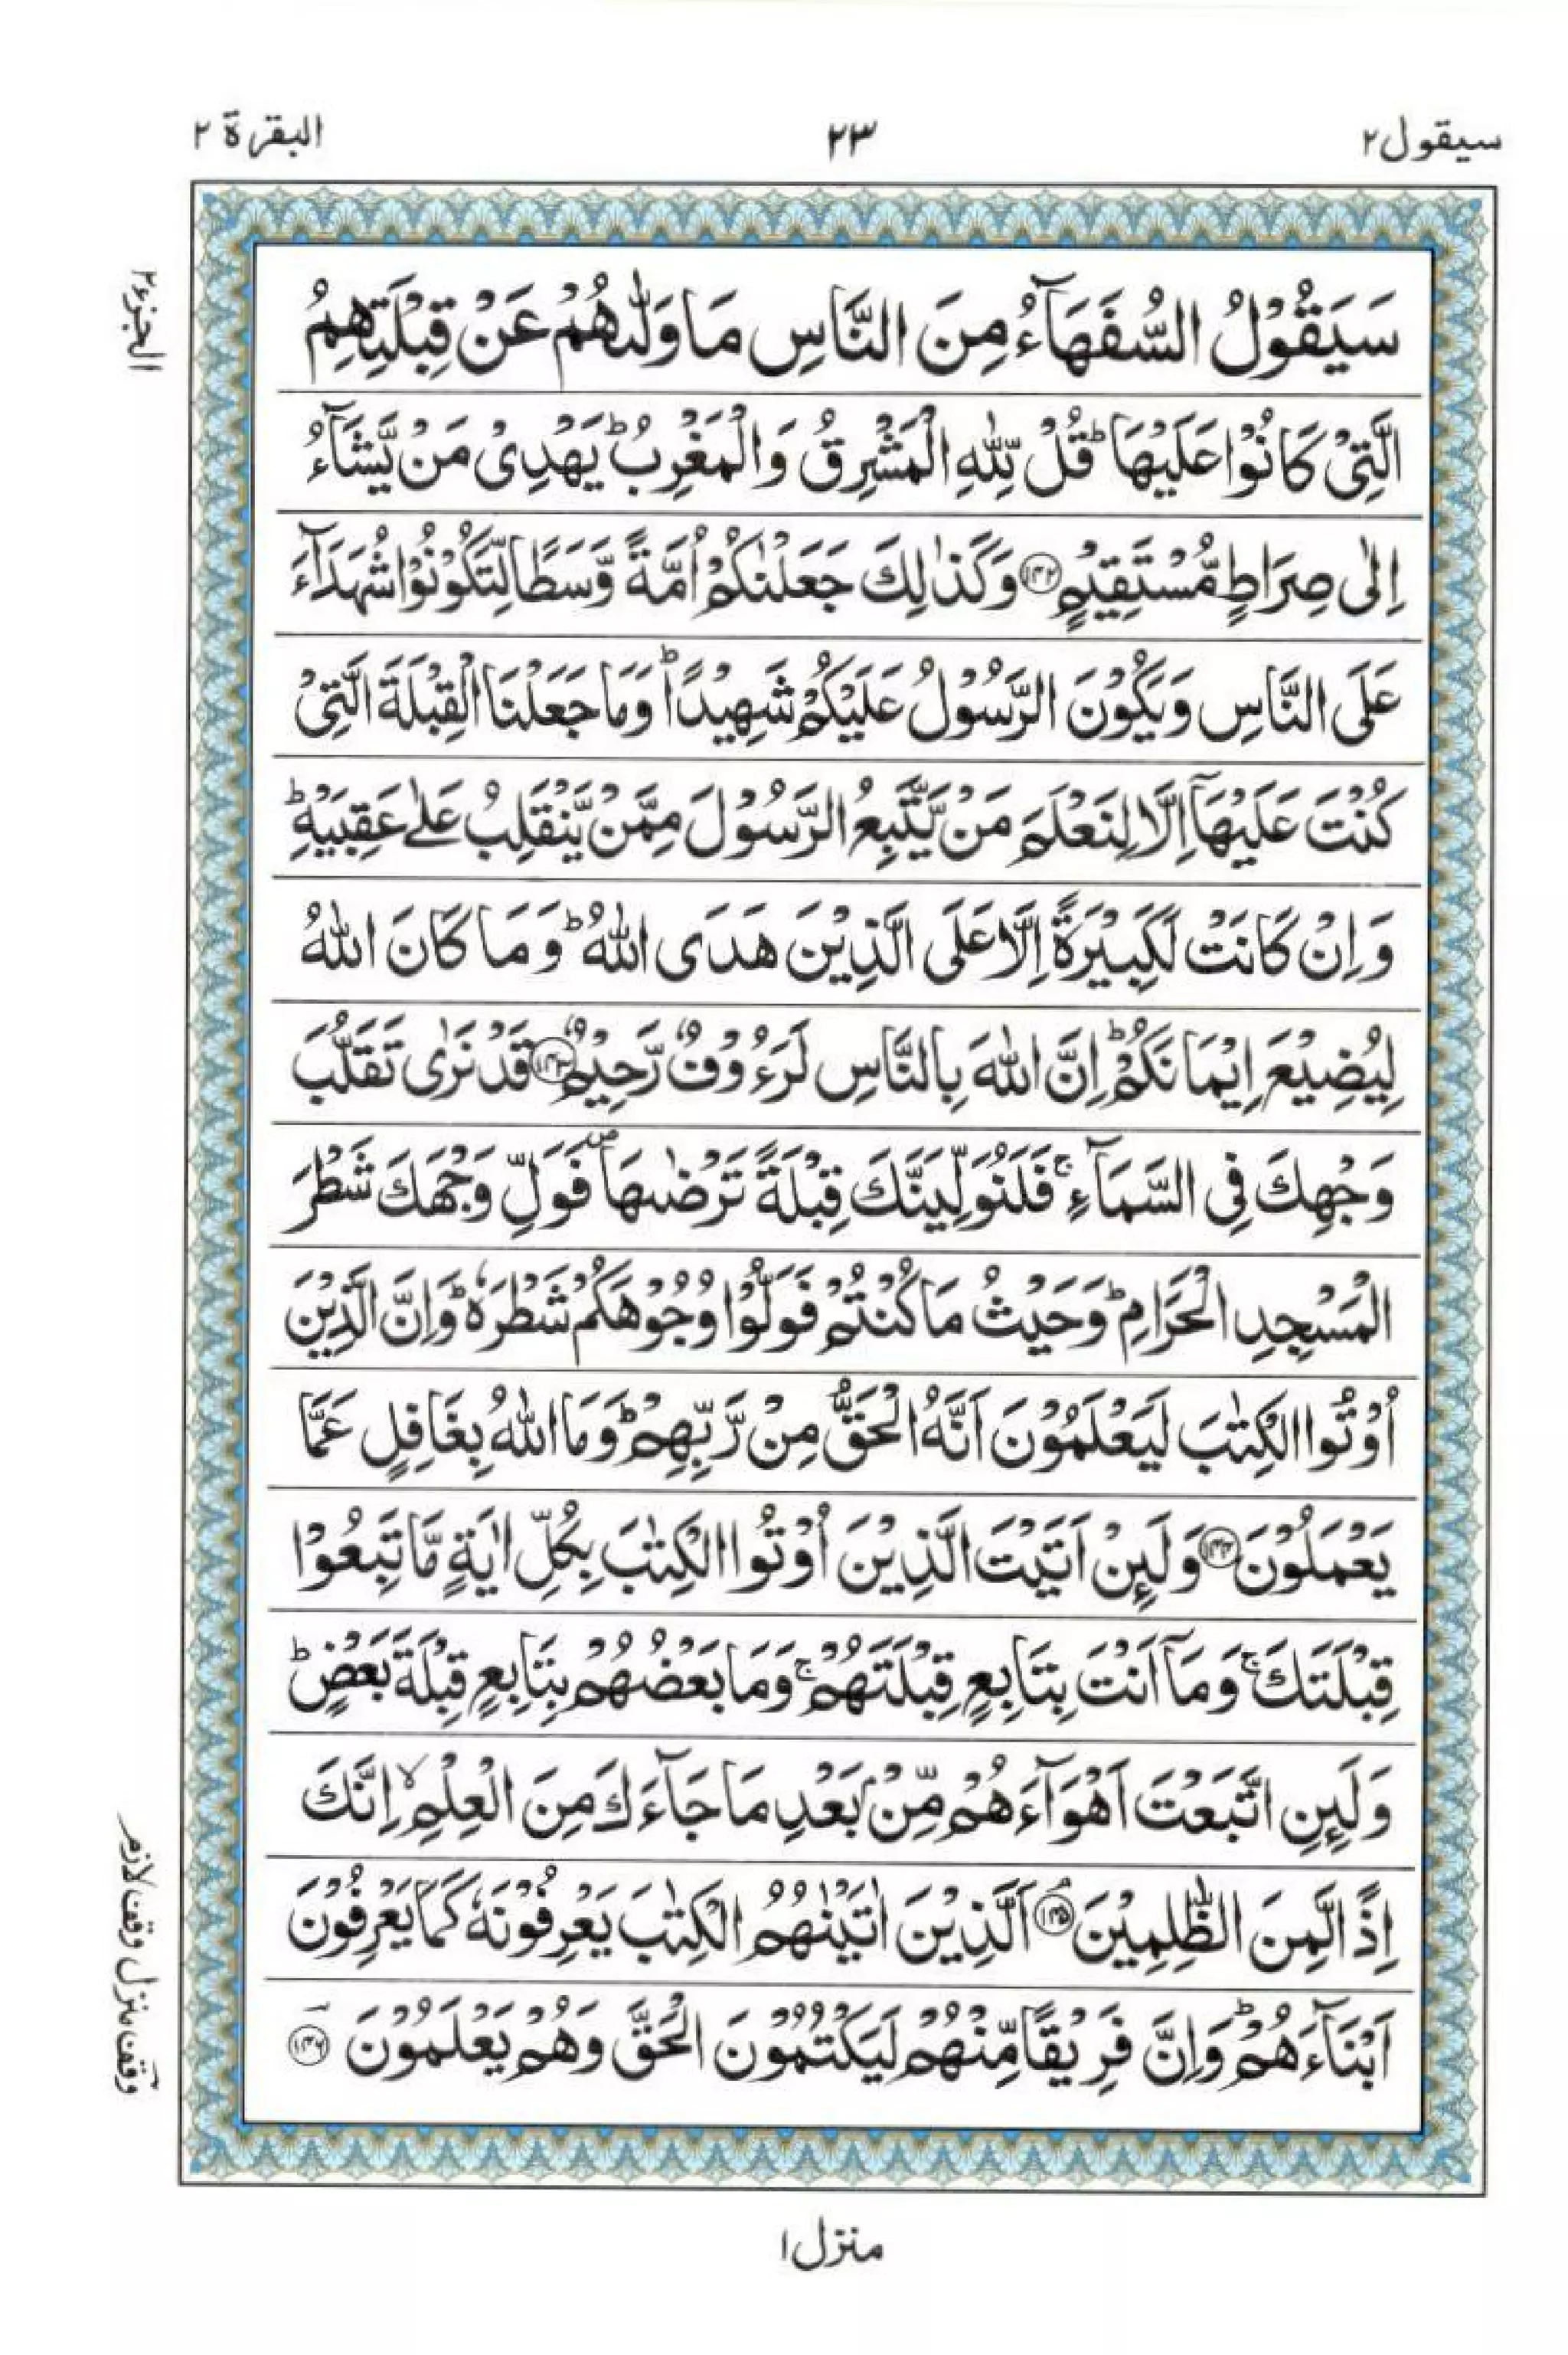 سيقول ٢
٢٣
البقرة ٢
الجزء ٢
سَيَقُوۡلُ السُّفَهَآءُ مِنَ النَّاسِ مَا وَلّٰٮهُمۡ عَنۡ قِبۡلَتِهِمُ
الَّتِىۡ كَانُوۡا عَلَيۡهَا ؕ قُلۡ لِّلّٰهِ الۡمَشۡرِقُ وَالۡمَغۡرِبُ ؕ يَهۡدِىۡ مَنۡ يَّشَآءُ
اِلٰى صِرَاطٍ مُّسۡتَقِيۡمٍ ﴿۱۴۲﴾ وَكَذٰلِكَ جَعَلۡنٰكُمۡ اُمَّةً وَّسَطًا لِّتَکُوۡنُوۡا شُهَدَآءَ
عَلَى النَّاسِ وَيَكُوۡنَ الرَّسُوۡلُ عَلَيۡكُمۡ شَهِيۡدًا ؕ وَمَا جَعَلۡنَا الۡقِبۡلَةَ الَّتِىۡ
كُنۡتَ عَلَيۡهَآ اِلَّا لِنَعۡلَمَ مَنۡ يَّتَّبِعُ الرَّسُوۡلَ مِمَّنۡ يَّنۡقَلِبُ عَلٰى عَقِبَيۡهِ ؕ
وَاِنۡ كَانَتۡ لَكَبِيۡرَةً اِلَّا عَلَى الَّذِيۡنَ هَدَى اللّٰهُ ؕ وَمَا كَانَ اللّٰهُ
لِيُضِيۡعَ اِيۡمَانَكُمۡ ؕ اِنَّ اللّٰهَ بِالنَّاسِ لَرَءُوۡفٌ رَّحِيۡمٌ ﴿۱۴۳﴾ قَدۡ نَرٰى تَقَلُّبَ
وَجۡهِكَ فِى السَّمَآءِ ۚ فَلَنُوَلِّيَنَّكَ قِبۡلَةً تَرۡضٰٮهَا ۖ فَوَلِّ وَجۡهَكَ شَطۡرَ
الۡمَسۡجِدِ الۡحَرَامِ ؕ وَحَيۡثُ مَا كُنۡتُمۡ فَوَلُّوۡا وُجُوۡهَكُمۡ شَطۡرَهٗ ؕ وَاِنَّ الَّذِيۡنَ
اُوۡتُوا الۡكِتٰبَ لَيَعۡلَمُوۡنَ اَنَّهُ الۡحَقُّ مِنۡ رَّبِّهِمۡ ؕ وَمَا اللّٰهُ بِغَافِلٍ عَمَّا
يَعۡمَلُوۡنَ ﴿۱۴۴﴾ وَلَٮِٕنۡ اَتَيۡتَ الَّذِيۡنَ اُوۡتُوا الۡكِتٰبَ بِكُلِّ اٰيَةٍ مَّا تَبِعُوۡا
قِبۡلَتَكَ ۚ وَمَآ اَنۡتَ بِتَابِعٍ قِبۡلَتَهُمۡ ۚ وَمَا بَعۡضُهُمۡ بِتَابِعٍ قِبۡلَةَ بَعۡضٍ ؕ
وَلَٮِٕنِ اتَّبَعۡتَ اَهۡوَآءَهُمۡ مِّنۡۢ بَعۡدِ مَا جَآءَكَ مِنَ الۡعِلۡمِ ۙ اِنَّكَ
اِذًا لَّمِنَ الظّٰلِمِيۡنَ ﴿۱۴۵﴾ۘ اَلَّذِيۡنَ اٰتَيۡنٰهُمُ الۡكِتٰبَ يَعۡرِفُوۡنَهٗ كَمَا يَعۡرِفُوۡنَ
اَبۡنَآءَهُمۡ ؕ وَاِنَّ فَرِيۡقًا مِّنۡهُمۡ لَيَكۡتُمُوۡنَ الۡحَقَّ وَهُمۡ يَعۡلَمُوۡنَ ﴿۱۴۶﴾
وقف منزل وقف لازم
منزل ۱